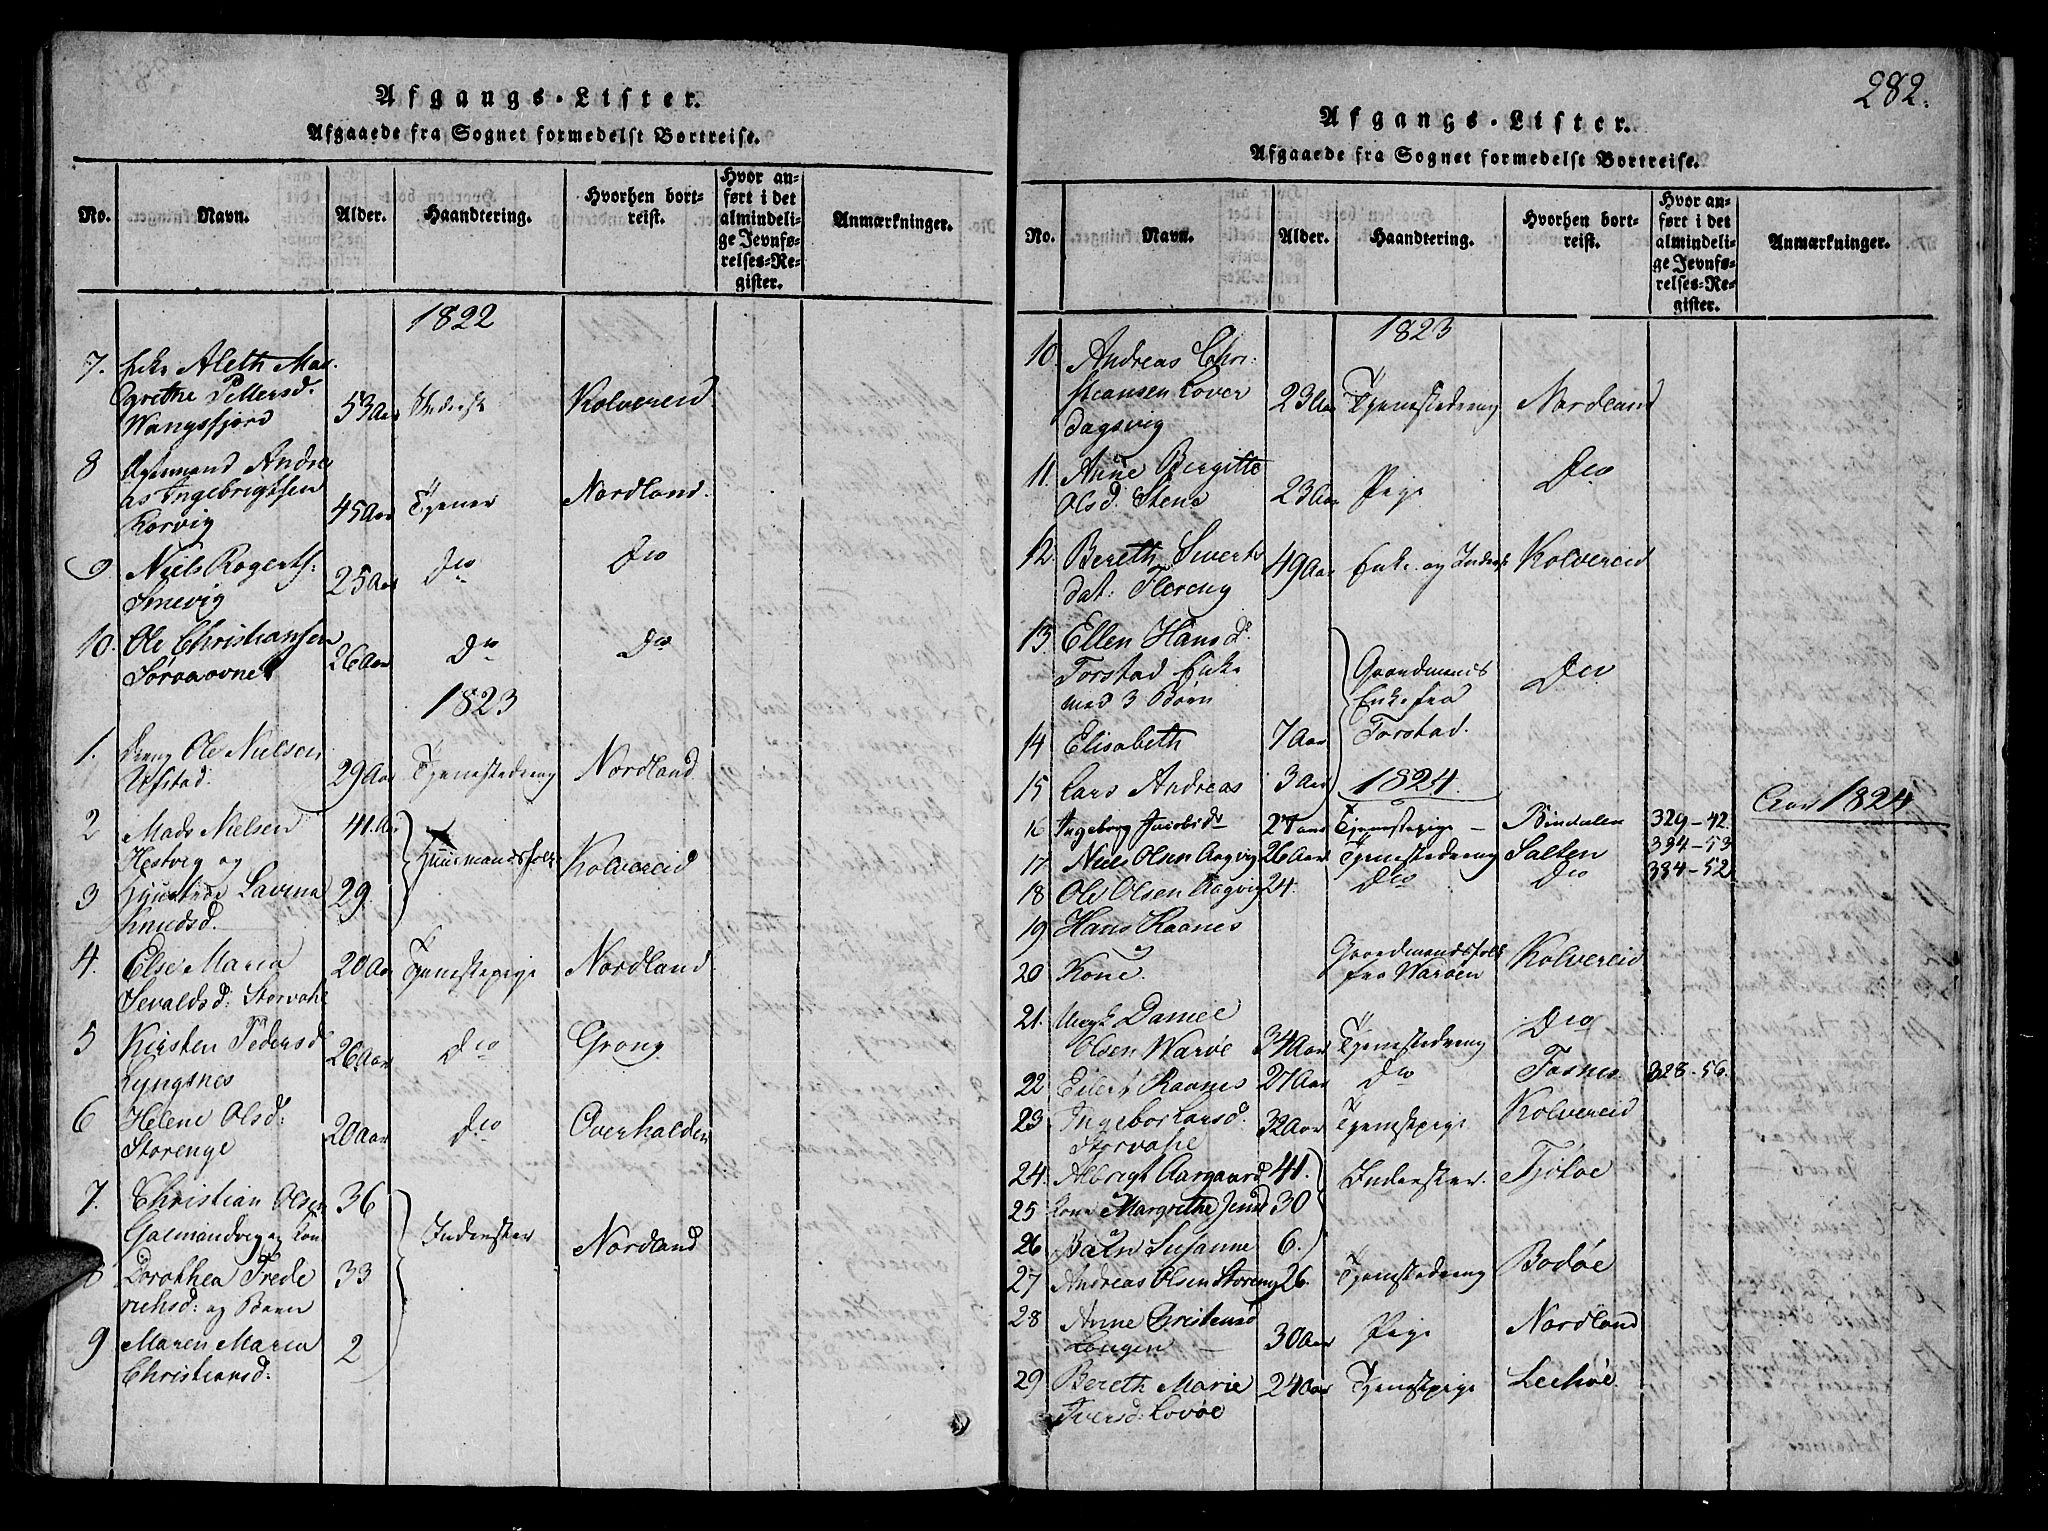 Afgangs-Lister.
Afgaaede fra Sognet formedelst Bortreise.
No. Navn. Alder. Haandtering. Hvorhen bortreist. Hvor anført i det almindelige Jevnførelses-Register. Anmærkninger.
1822
7. Enke Aleth Mar-
grethe Pettersd.
Wangsfjord 53 Aar Inderst Kolvereid
8 Andre
as Ingebrigtsen
Korvig 45 Aar Tjener Nordland.
9. Niels Rogerts.
Smevig 25 Aar Do Do
10. Ole Christiansen
Sørraavne 26 Aar Do Do
1823
1. Dreng Ole Nielsen
Ufstad: 29 Aar Tjenestedreng Nordland
2 Mads Nielsen 41. Aar
Hestvig og Huusmandsfolk Kolvereid
3 Hustrue Lavina 29.
Knudsd.
4. Else Maria 20 Aar Tjenestepige Nordland
Sevaldsd: Storvahl
5 Kirsten Pedersd 26 Aar Do Grong
Lyngsnes
6 Helene Olsd: 20 Aar Do Overhalden
Storenge
7. Christian Olsen 36
Galmandvig og Kone Inderster Nordland
8 Dorothea Frede 33
richsd: og Barn
9 Maren Maria 2
Christiansd:
282.
Afgangs-Lister.
Afgaaede fra Sognet formedelst Bortreise.
No. Navn. Alder. Haandtering. Hvorhen bortreist. Hvor anført i det almindelige Jevnførelses-Register. Anmærkninger.
1823
10. Andreas Chri-
stiansen Lover
dagsvig 23 Aar Tjenestedreng Nordland
11. Anne Birgitte
Olsd. Stene 23 Aar Pige Do
12. Bereth Siverts
dat: Flereng 49 Aar Enke og Inderst Kolvereid
13 Ellen Hansd.
Torstad Enke
med 3 Børn Gaardmands Enke fra Torstad. Do
14 Elisabeth 7 Aar
15 Lars Andreas 3 Aar
1824. Aar 1824
16 Ingeborg Jacobsd 27 Aar Tjenestepige - Bindalen 329-42.
17. Niels Olsen Aagvig 26 Aar Tjenestedreng Salten 334-53
18 Ole Olsen Aagvig 24. Do Do 334-52
19 Hans Raanes
20 Kone. Gaardmandsfolk fra Warøen Kolvereid
21. Ungk. Daniel
Olsen Warøe 34 Aar Tjenestedreng Do
22 Eilert Raanes 27 Aar Do Fosnes 328-56.
23. Ingebor Larsd. 32 Aar Tjenestepige Kolvereid
Storvahl
24. Albrigt Aargaard 41. Inderster. Tjøtøe
25 Kone Margrethe Jensd 30
26 Barn Susanne 6.
27 Andreas Olsen Storeng 26. Tjenestedreng Bodøe
28 Anne Cristensd
Longen - 30 Aar Pige Nordland
29 Bereth Marie 24 Aar Tjenestepige Lechøe
Iversd: Lovøe